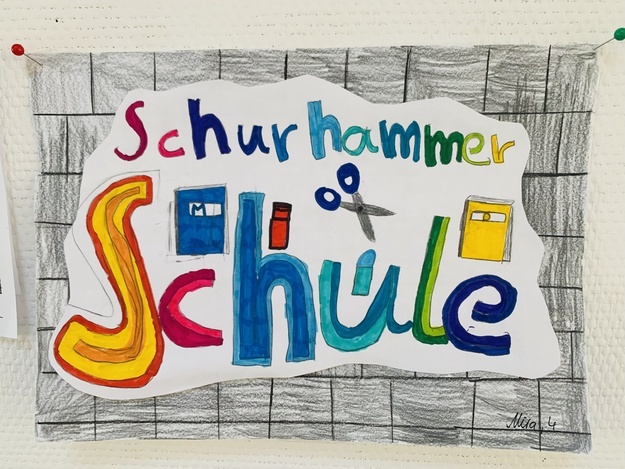 Schurhammer
M
Schule
Mira, 4